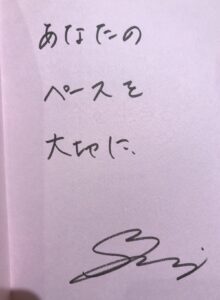 あなたの
ペースを
大地に.